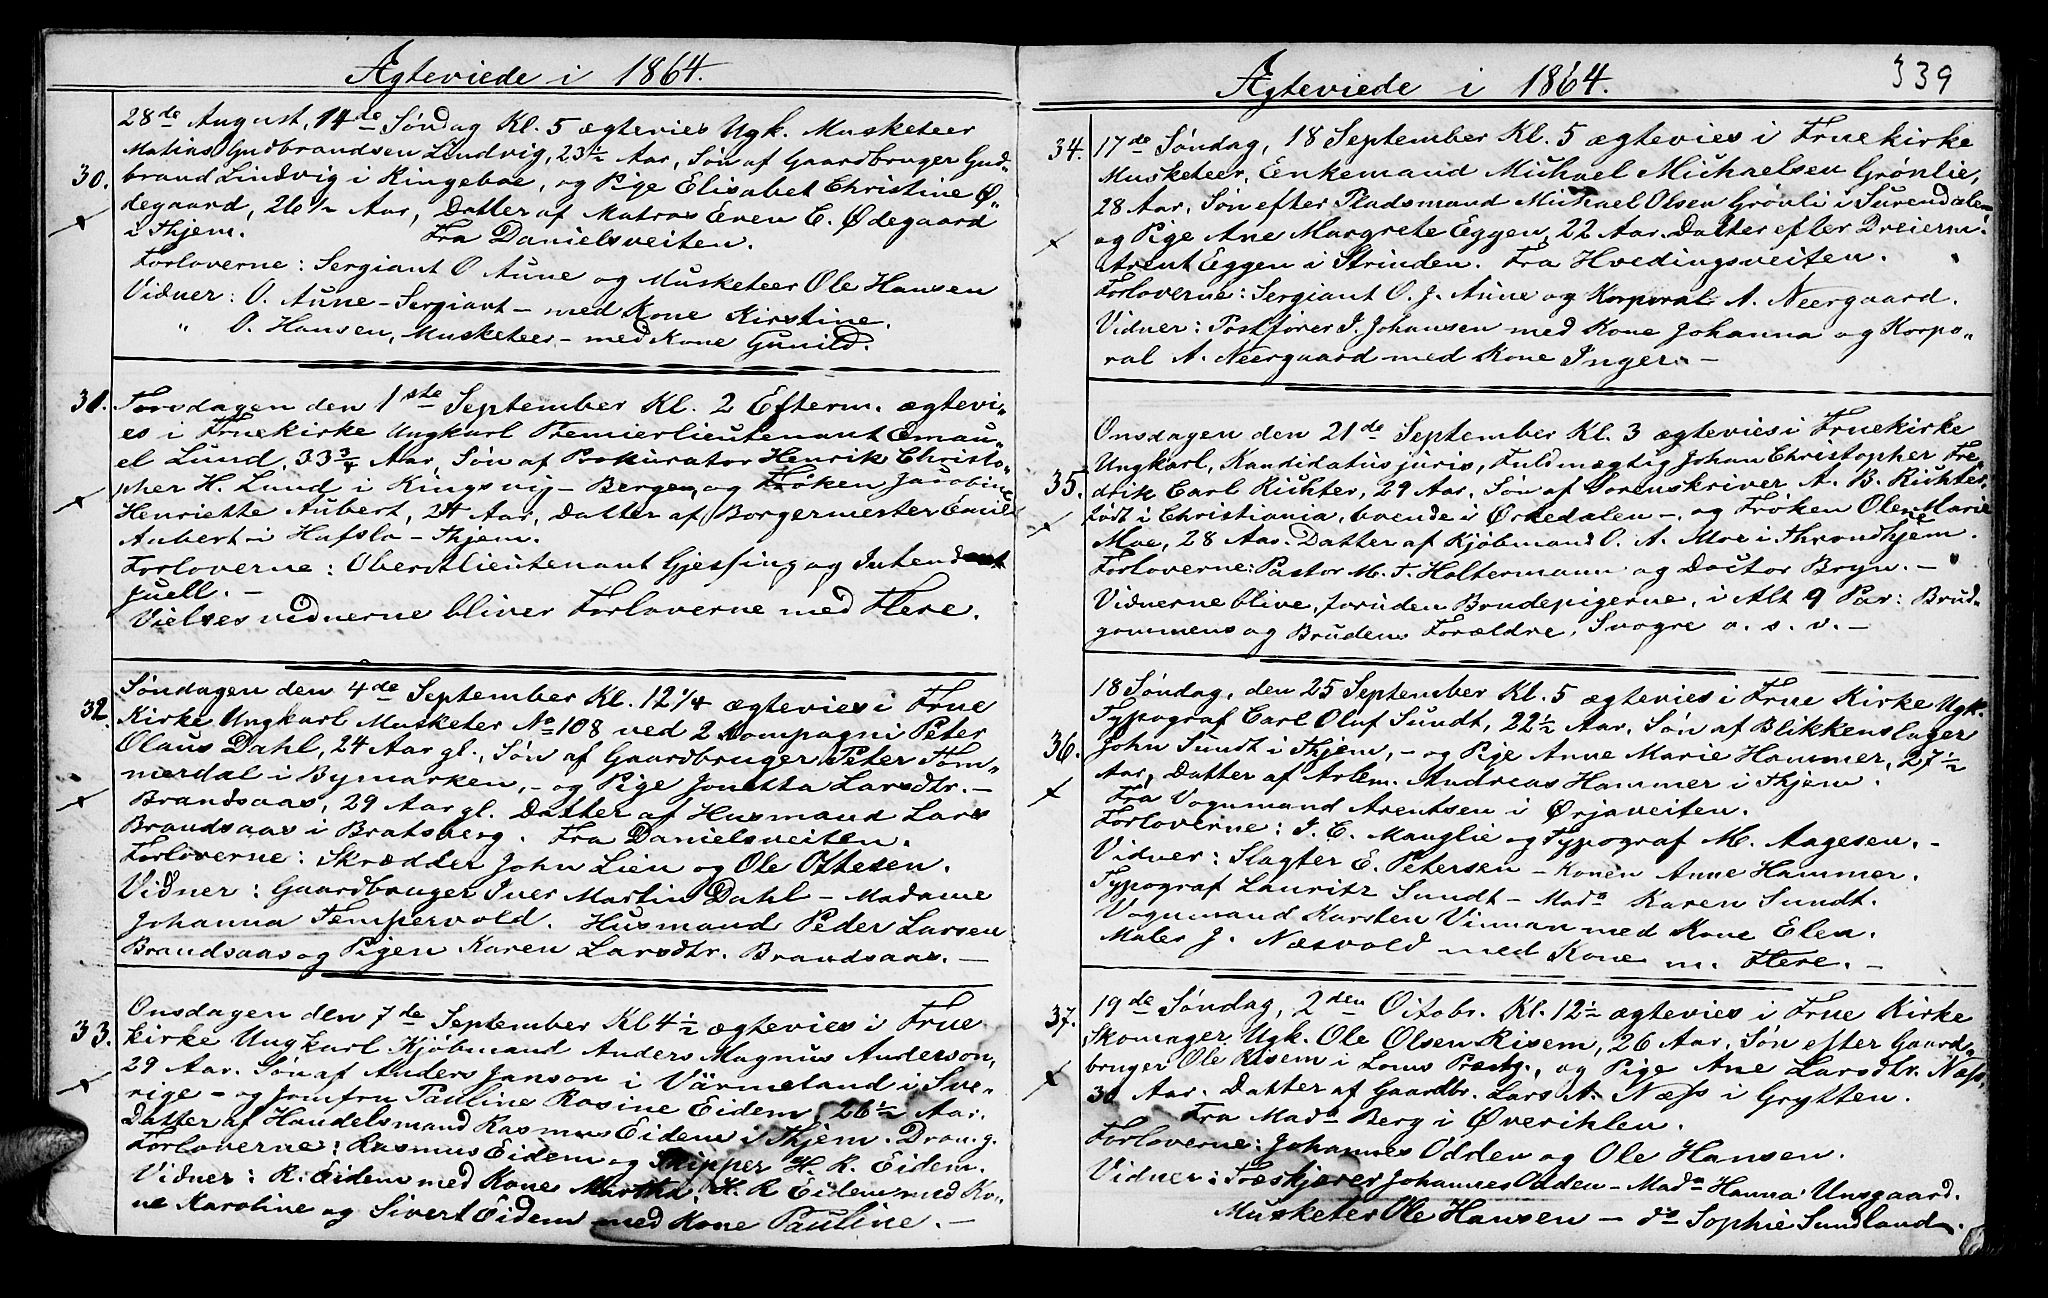 Ægteviede i 1864.
28de August, 14de Søndag Kl. 5 ægtevies Ugk. Musketeer
Matias Gudbrandsen Lindvig, 23½ Aar, Søn af Gaardbruger Gud-
30. brand Lindvig i Ringeboe, og Pige Elisabet Christine Ø-
degaard, 26½ Aar, Datter af Matros Even C. Ødegaard
i Thjem. Fra Danielsveiten.
Forloverne: Sergiant O Aune og Musketeer Ole Hansen
Vidner: O. Aune - Sergiant - med Kone Kirstine.
" O. Hansen, Musketeer - med Kone Gunild.
31. Torsdagen den 1ste September Kl. 2 Efterm. ægtevi-
es i Fruekirke Ungkarl Premierlieutenant Emau-
el Lund, 33¾ Aar, Søn af Prokurator Henrik Christo-
pher H. Lund i Kingsvij - Bergen, og Frøken Jacobine
Henriette Aubert, 24 Aar, Datter af Borgermester Emil
Aubert i Hafslo - Thjem.
Forloverne: Oberstlieutenant Gjessing og Intendant
Juell. -
Vielsesvidnerne bliver Forloverne med Flere.
Søndagen den 4de September Kl. 12¼ ægtevies i Frue
32. Kirke Ungkarl Musketer No 108 ved 2 Kompagni Peter
Olaus Dahl, 24 Aar gl., Søn af Gaardbruger Peter Tom-
merdal i Bymarken, - og Pige Jonetta Larsdtr. -
Brandsaas, 29 Aar gl. Datter af Husmand Lars
Brandsaas i Bratsberg. Fra Danielsveiten.
Forloverne: Skrædder John Lien og Ole Ottesen.
Vidner: Gaardbruger Iver Martin Dahl - Madame
Johanna Tempervold. Husmand Peder Larsen
Brandsaas og Pigen Karen Larsdtr. Brandsaas. -
Onsdagen den 7de September Kl 4½ ægtevies i Frue
33. kirke Ungkarl Kjøbmand Anders Magnus Anderson,
29 Aar. Søn af Anders Janson i Värmeland i Sve-
rige - og Jomfru Pauline Rasine Eidem, 26½ Aar.
Datter af Handelsmand Rasmus Eidem i Thjem. Dron.g.
Forloverne: Rasmus Eidem og Skipper H. R. Eidem.
Vidner: R. Eidem med Kone Martha, H. R Eidem med Ko-
ne Karoline og Sivert Eidem med Kone Pauline. -
Ægteviede i 1864. 339
34. 17de Søndag, 18 September Kl. 5 ægtevies i Fruekirke
Musketeer, Enkemand Michael Michaelsen Grønlie,
28 Aar, Søn efter Pladsmand Michael Olsen Grønli i Surendalen
og Pige Ane Margrete Eggen, 22 Aar. Datter efter Dreierm.
Arent Eggen i Strinden. Fra Hvedingsveiten.
Forloverne: Sergiant O. J. Aune og Korporal A. Neergaard.
Vidner: Postfører J. Johansen med Kone Johanna og Korpo-
ral A. Neergaard med Kone Inger. -
Onsdagen den 21de September Kl. 3 ægtevies i Fruekirke
Ungkarl, Kandidatus juris, Fuldmægtig Johan Christopher Fre-
35. drik Carl Richter, 29 Aar. Søn af Sorenskriver A. B. Richter,
født i Christiania, boende i Ørkedalen -, og Frøken Olene Marie
Moe, 28 Aar. Datter af Kjøbmand O. A. Moe i Throndhjem.
Forloverne: Pastor M. T. Holtermann og Doctor Bryn. -
Vidnerne blive, foruden Brudepigerne, i Alt 9 Par: Brud-
gommens og Brudens Forældre, Svogre o. s. v. -
18 Søndag, den 25 September Kl. 5 ægtevies i Frue Kirke Ugk.
Typograf Carl Oluf Sundt, 22½ Aar, Søn af Blikkenslager
36. John Sundt i Thjem, - og Pige Anne Marie Hammer, 27½
Aar, Datter af Arbm. Andreas Hammer i Thjem.
Fra Vognmand Arentsen i Ørjaveiten.
Forloverne: J. C. Manglie og Typograf M. Aagesen. -
Vidner: Slagter E. Petersen - Konen Anne Hammer.
Typograf Lauritz Sundt - Mada Karen Sundt.
Vognmand Karsten Vinnan med Kone Elen.
Maler J. Næsvold med Kone m. Flere. -
37. 19de Søndag, 2den Octobr. Kl. 12½ ægtevies i Frue Kirke
Skomager Ugk. Ole Olsen Risem, 26 Aar, Søn efter Gaard-
bruger Ole Risem i Loms Præstg., og Pige Ane Larsdtr. Næss,
30 Aar. Datter af Gaardbr. Lars A. Næss i Grytten.
Fra Mada Berg i Øverihlen.
Forloverne: Johannes Odden og Ole Hansen.
Vidner: Træskjærer Johannes Odden - Mada Hanna Unsgaard.
Musketer Ole Hansen - do Sophie Sundland.